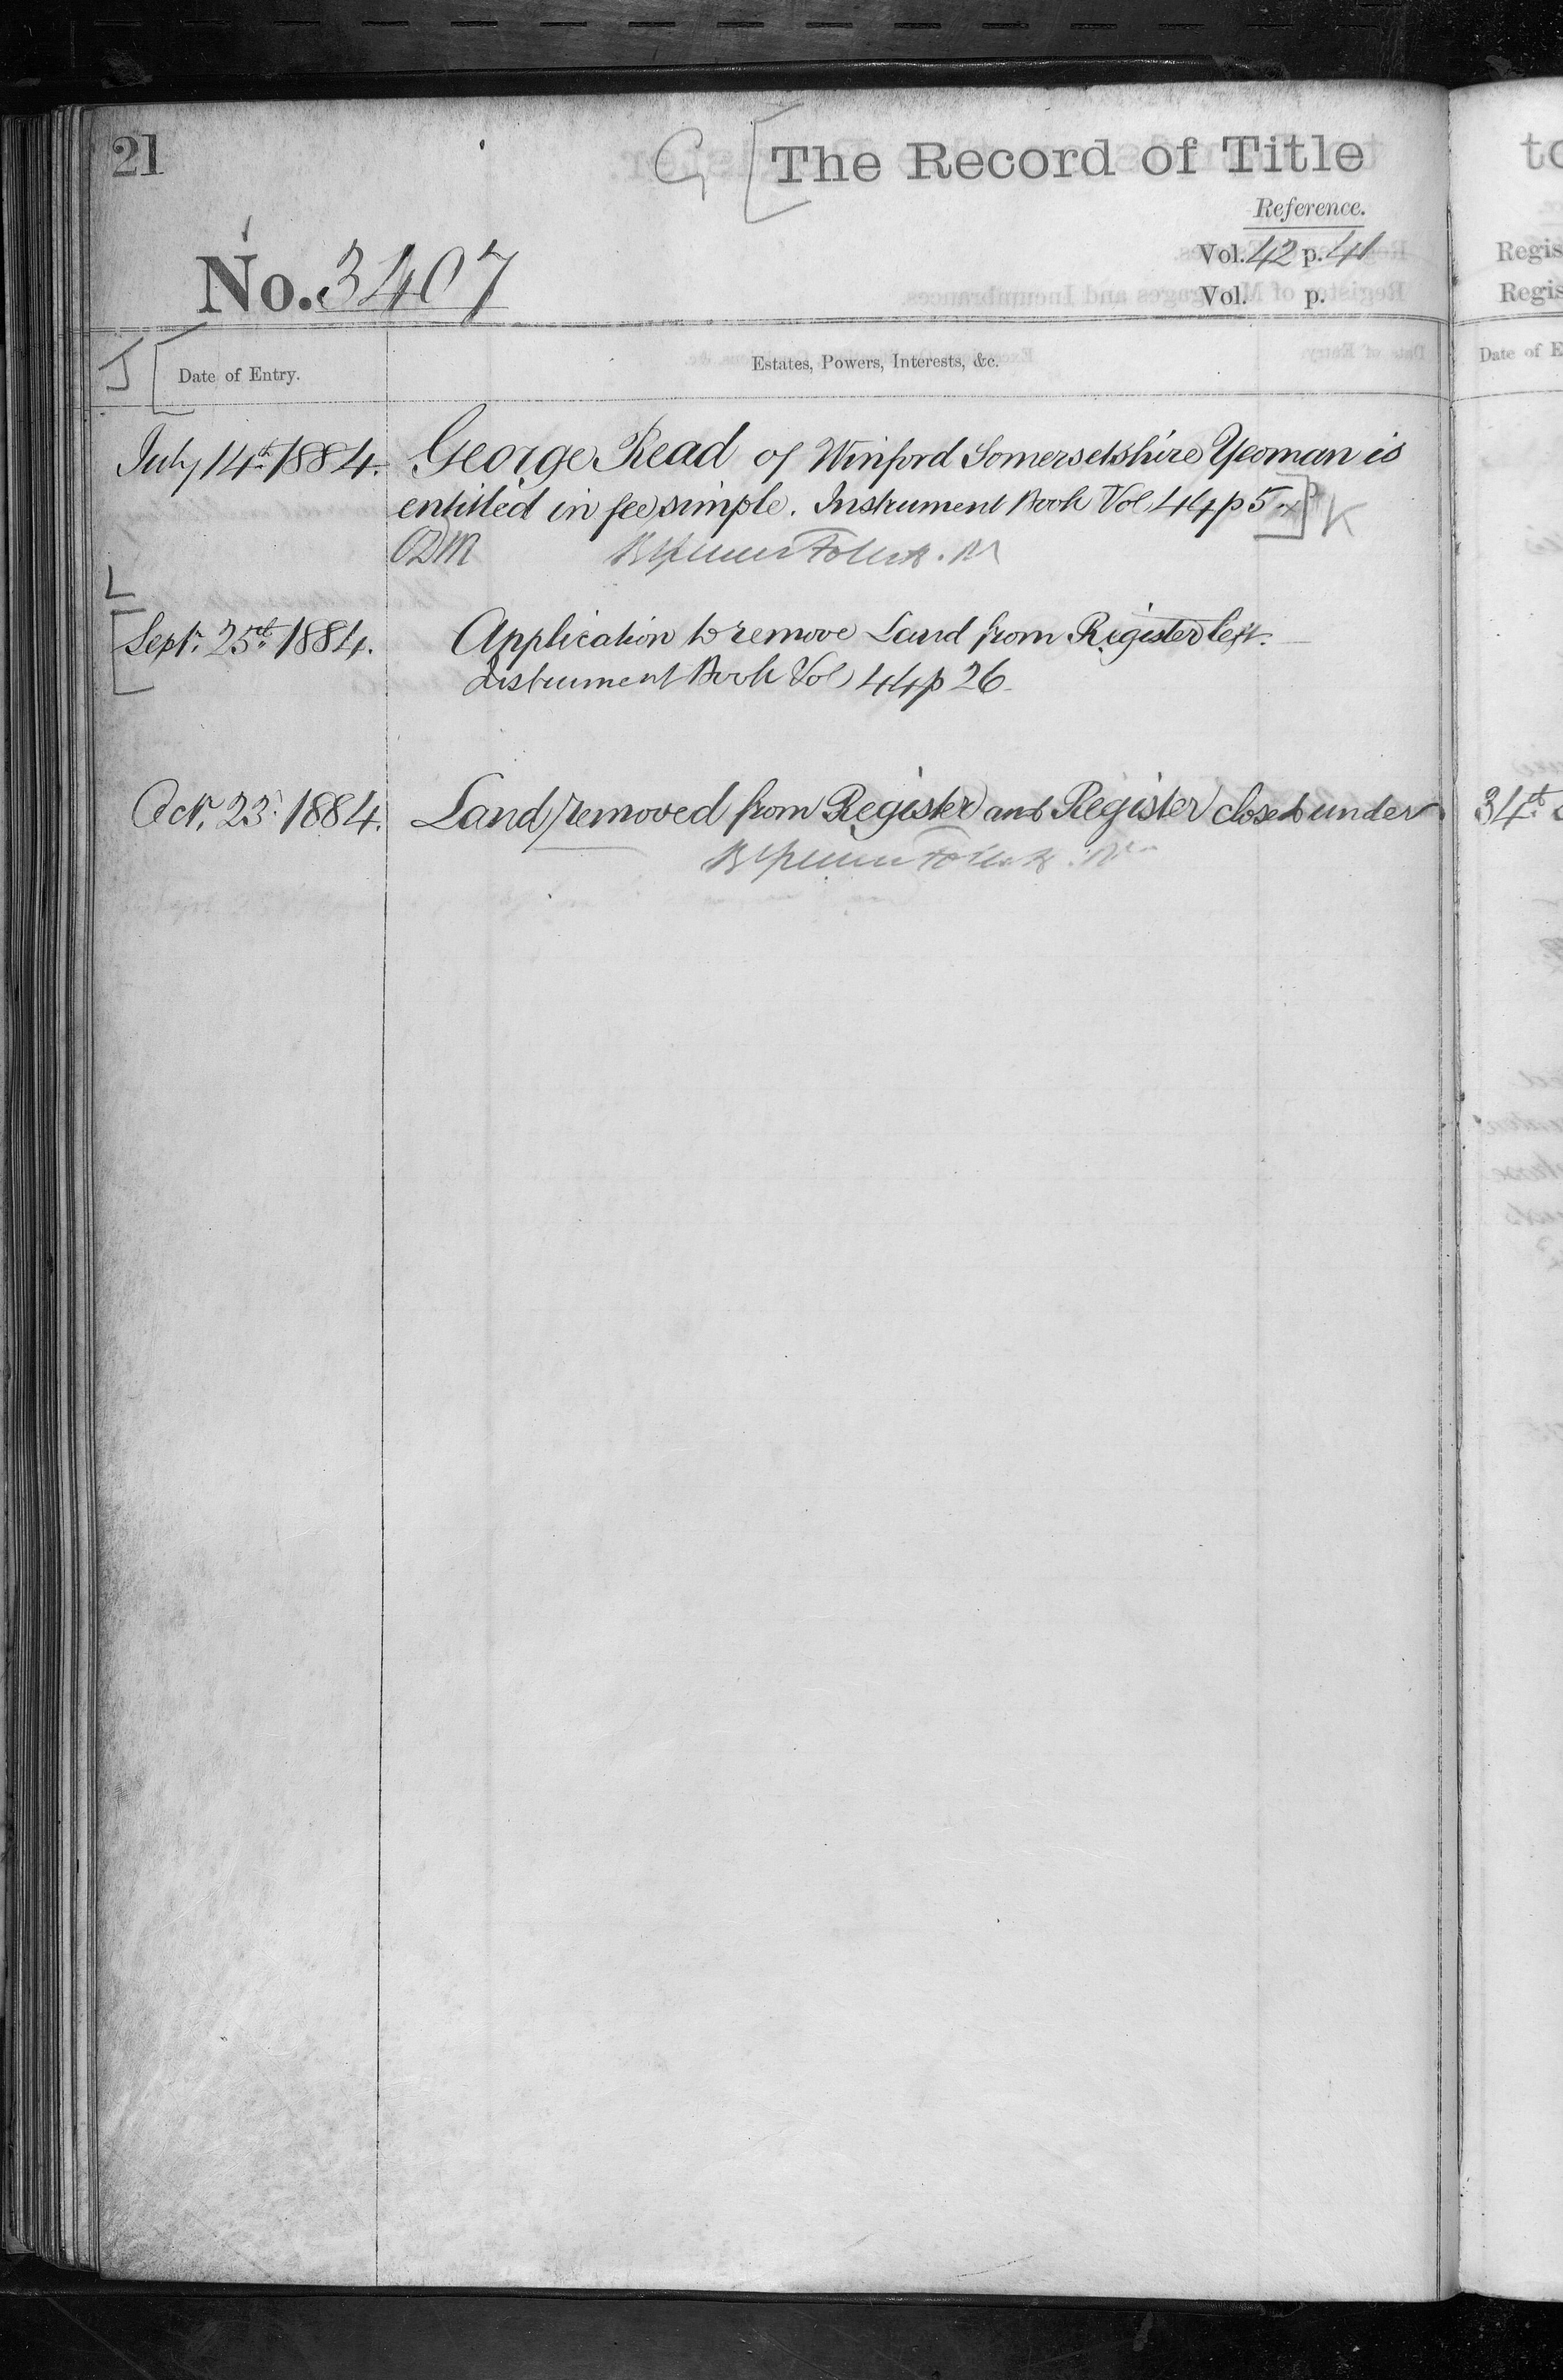 21
G [ The Record of Title
Reference.
Vol. 42 p. 41
No. 3407
Vol. p.
J [ Date of Entry.
Estates, Powers, Interests, &c.
July 14th 1884. George Read of Winford Somersetshire Yeoman is
entitled in fee simple. Instrument Book Vol 44 p 5 ] K
L
[ Sept. 25th 1884. Application to remove Land from Register left.
Instrument Book Vol 44 p 26
Oct. 23. 1884. Land removed from Register and Register closed under
to
Regis
Regis
Date of E
34th